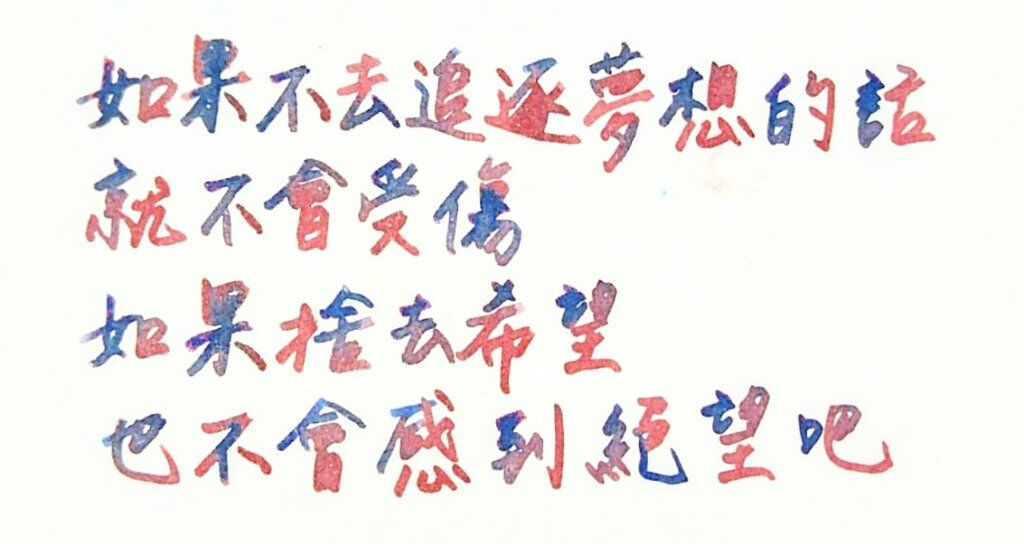 如果不去追逐夢想的話
就不會受傷
如果捨去希望
也不會感到絕望吧